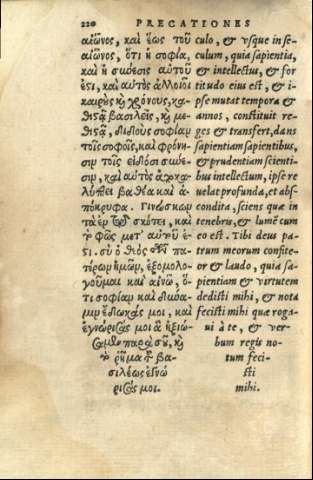 220 PRECATIONES
αἰῶνος, καὶ ἕως τοῦ
αἰῶνος, ὅτι ἡ σοφία,
καὶ ἡ σύνεσις αὐτοῦ
ἐστι, καὶ αὐτὸς ἀλλοιοῖ
καιροὺς καὶ χρόνους, κα-
θιστᾷ βασιλεῖς, καὶ με-
θιστᾷ, διδοὺς σοφίαν
τοῖς σοφοῖς, καὶ φρόνη-
σιν τοῖς εἰδόσι σύνε-
σιν, καὶ αὐτὸς ἀποκα-
λύπτει βαθέα καὶ ἀ-
πόκρυφα. Γινώσκων
τὰ ἐν τῷ σκότει, καὶ
τὸ φῶς μετ' αὐτοῦ ἐ-
στι. σὺ ὁ θεὸς τῶν πα-
τέρων ἡμῶν, ἐξομολο-
γοῦμαι καὶ αἰνῶ, ὅ-
τι σοφίαν καὶ δύνα-
μιν ἔδωκάς μοι, καὶ
ἐγνώρισάς μοι ἃ ἠξιώ-
σαμεν παρὰ σοῦ, καὶ
τὸ ῥῆμα τοῦ βα-
σιλέως ἐγνώ
ρισάς μοι.
culo, & vsque in se-
culum, quia sapientia,
& intellectus, & for
titudo eius est, & i-
pse mutat tempora &
annos, constituit re-
ges & transfert, dans
sapientiam sapientibus,
& prudentiam scienti-
bus intellectum, ipse re
uelat profunda, et abs-
condita, sciens quæ in
tenebris, & lumē cum
eo est. Tibi deus pa-
trum meorum confite-
or & laudo, quia sa-
pientiam & virtutem
dedisti mihi, & nota
fecisti mihi quæ roga-
ui à te, & ver-
bum regis no-
tum feci-
sti
mihi.